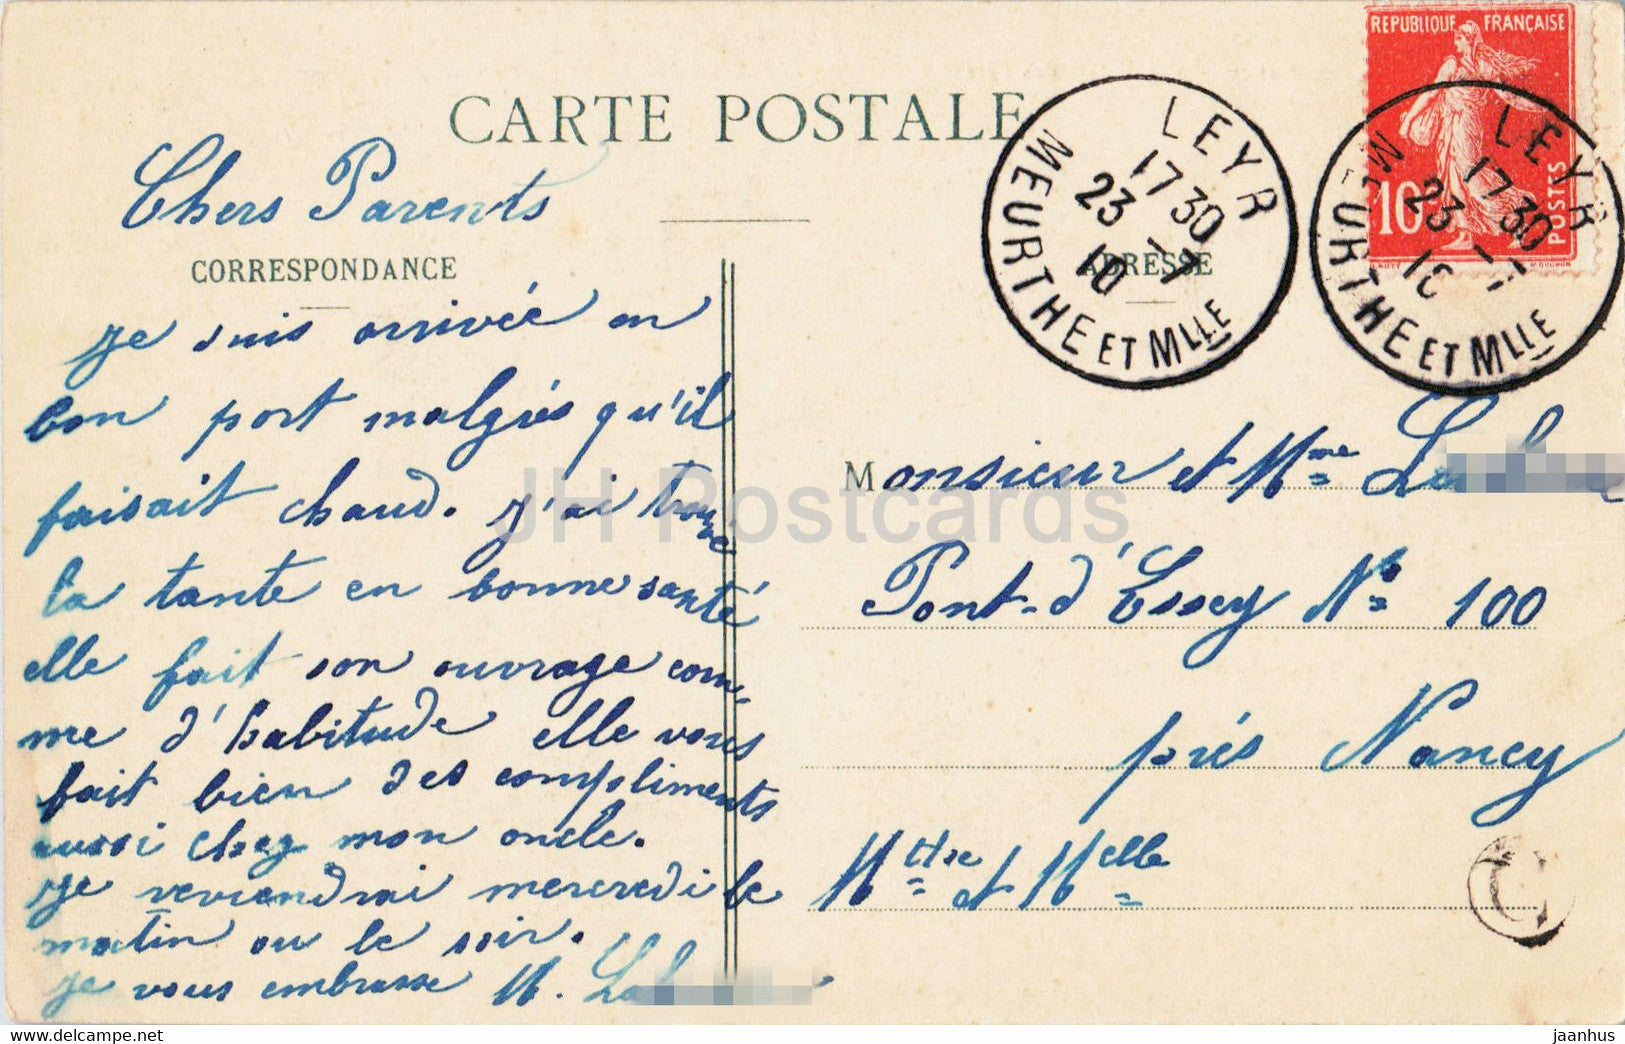 CARTE POSTALE
Chers Parents
CORRESPONDANCE
je suis arrivée en
bon port malgrés qu'il
faisait chaud. j'ai trouvé
la tante en bonne santé
elle fait son ouvrage com-
me d'habitude elle vous
fait bien des compliments
aussi chez mon oncle.
je reviendrai mercredi le
matin ou le soir.
je vous embrasse M.
ADRESSE
Monsieur et Mme
Pont-d'Essey No 100
prés Nancy
Mthe et Melle
LEYR
17 30
23 - 7
10
MEURTHE ET MLLE
LEYR
17 30
23 - 7
10
MEURTHE ET MLLE
REPUBLIQUE FRANÇAISE
10c
POSTES
JH Postcards
www.jhpostcards.com
jaanhus